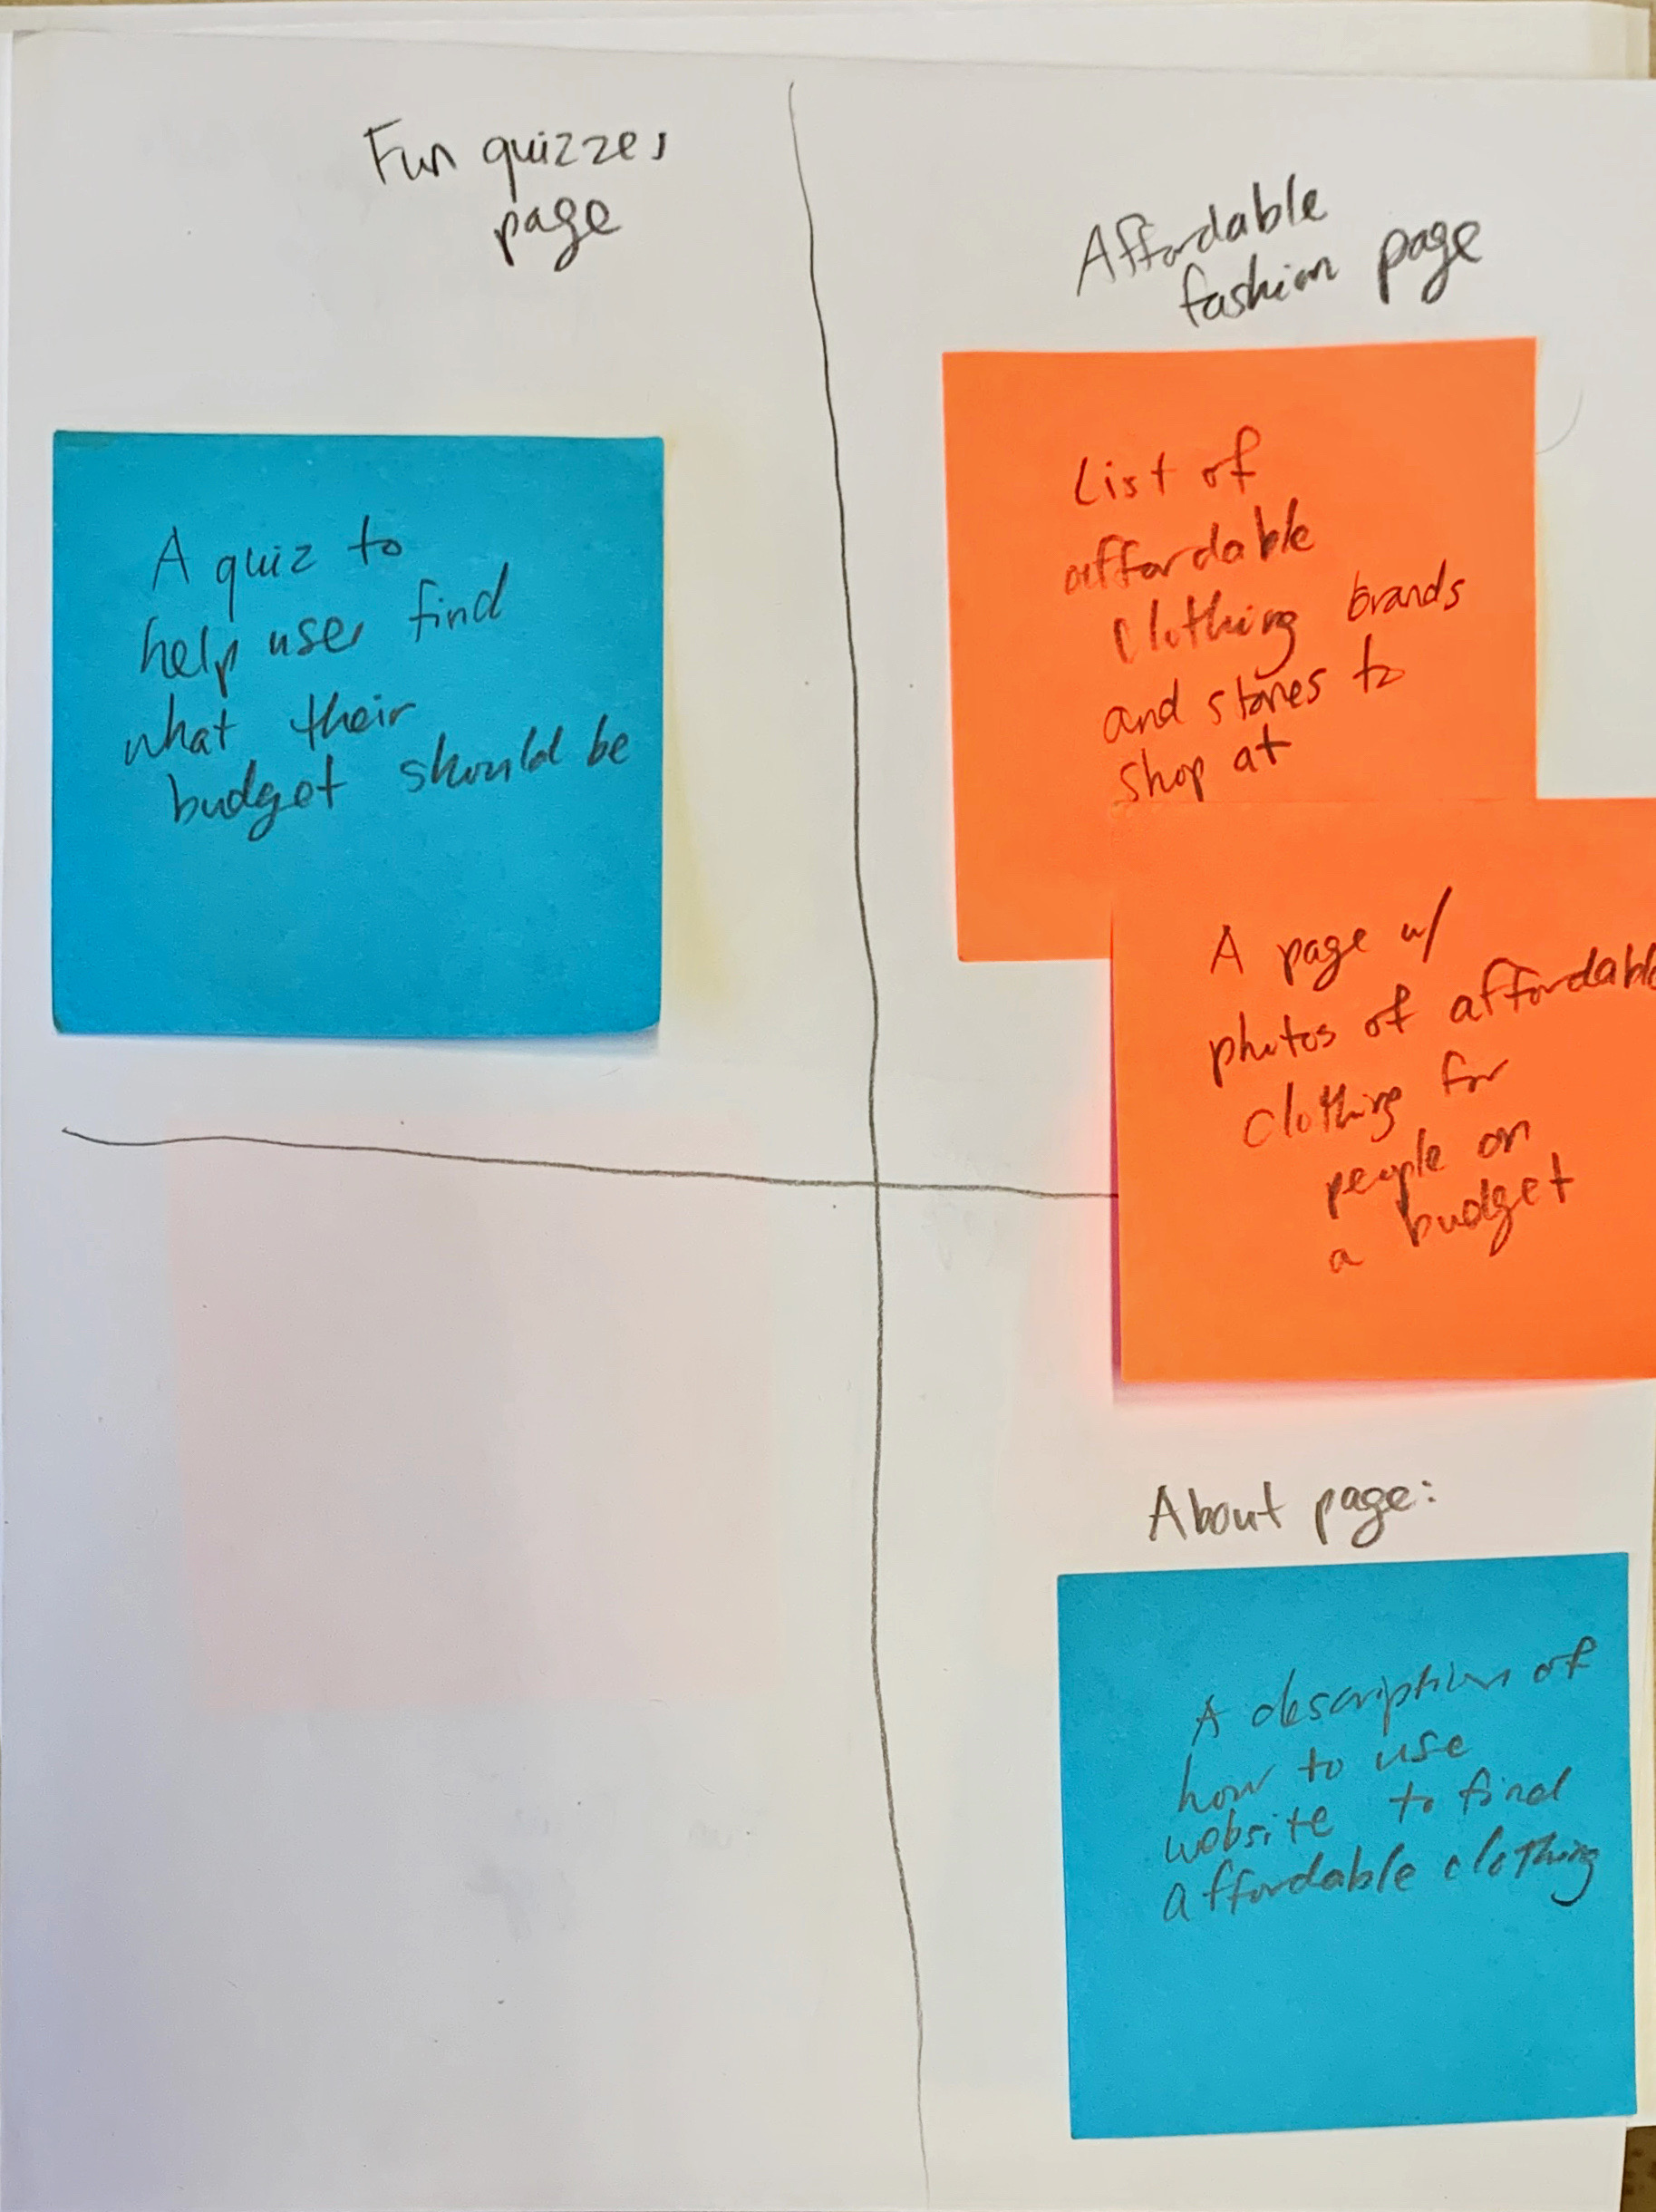 Fun quizzes
page
A quiz to
help user find
what their
budget should be
Affordable
fashion page
List of
affordable
clothing brands
and stores to
shop at
A page w/
photos of affordable
clothing for
people on
a budget
About page:
A description of
how to use
website to find
affordable clothing